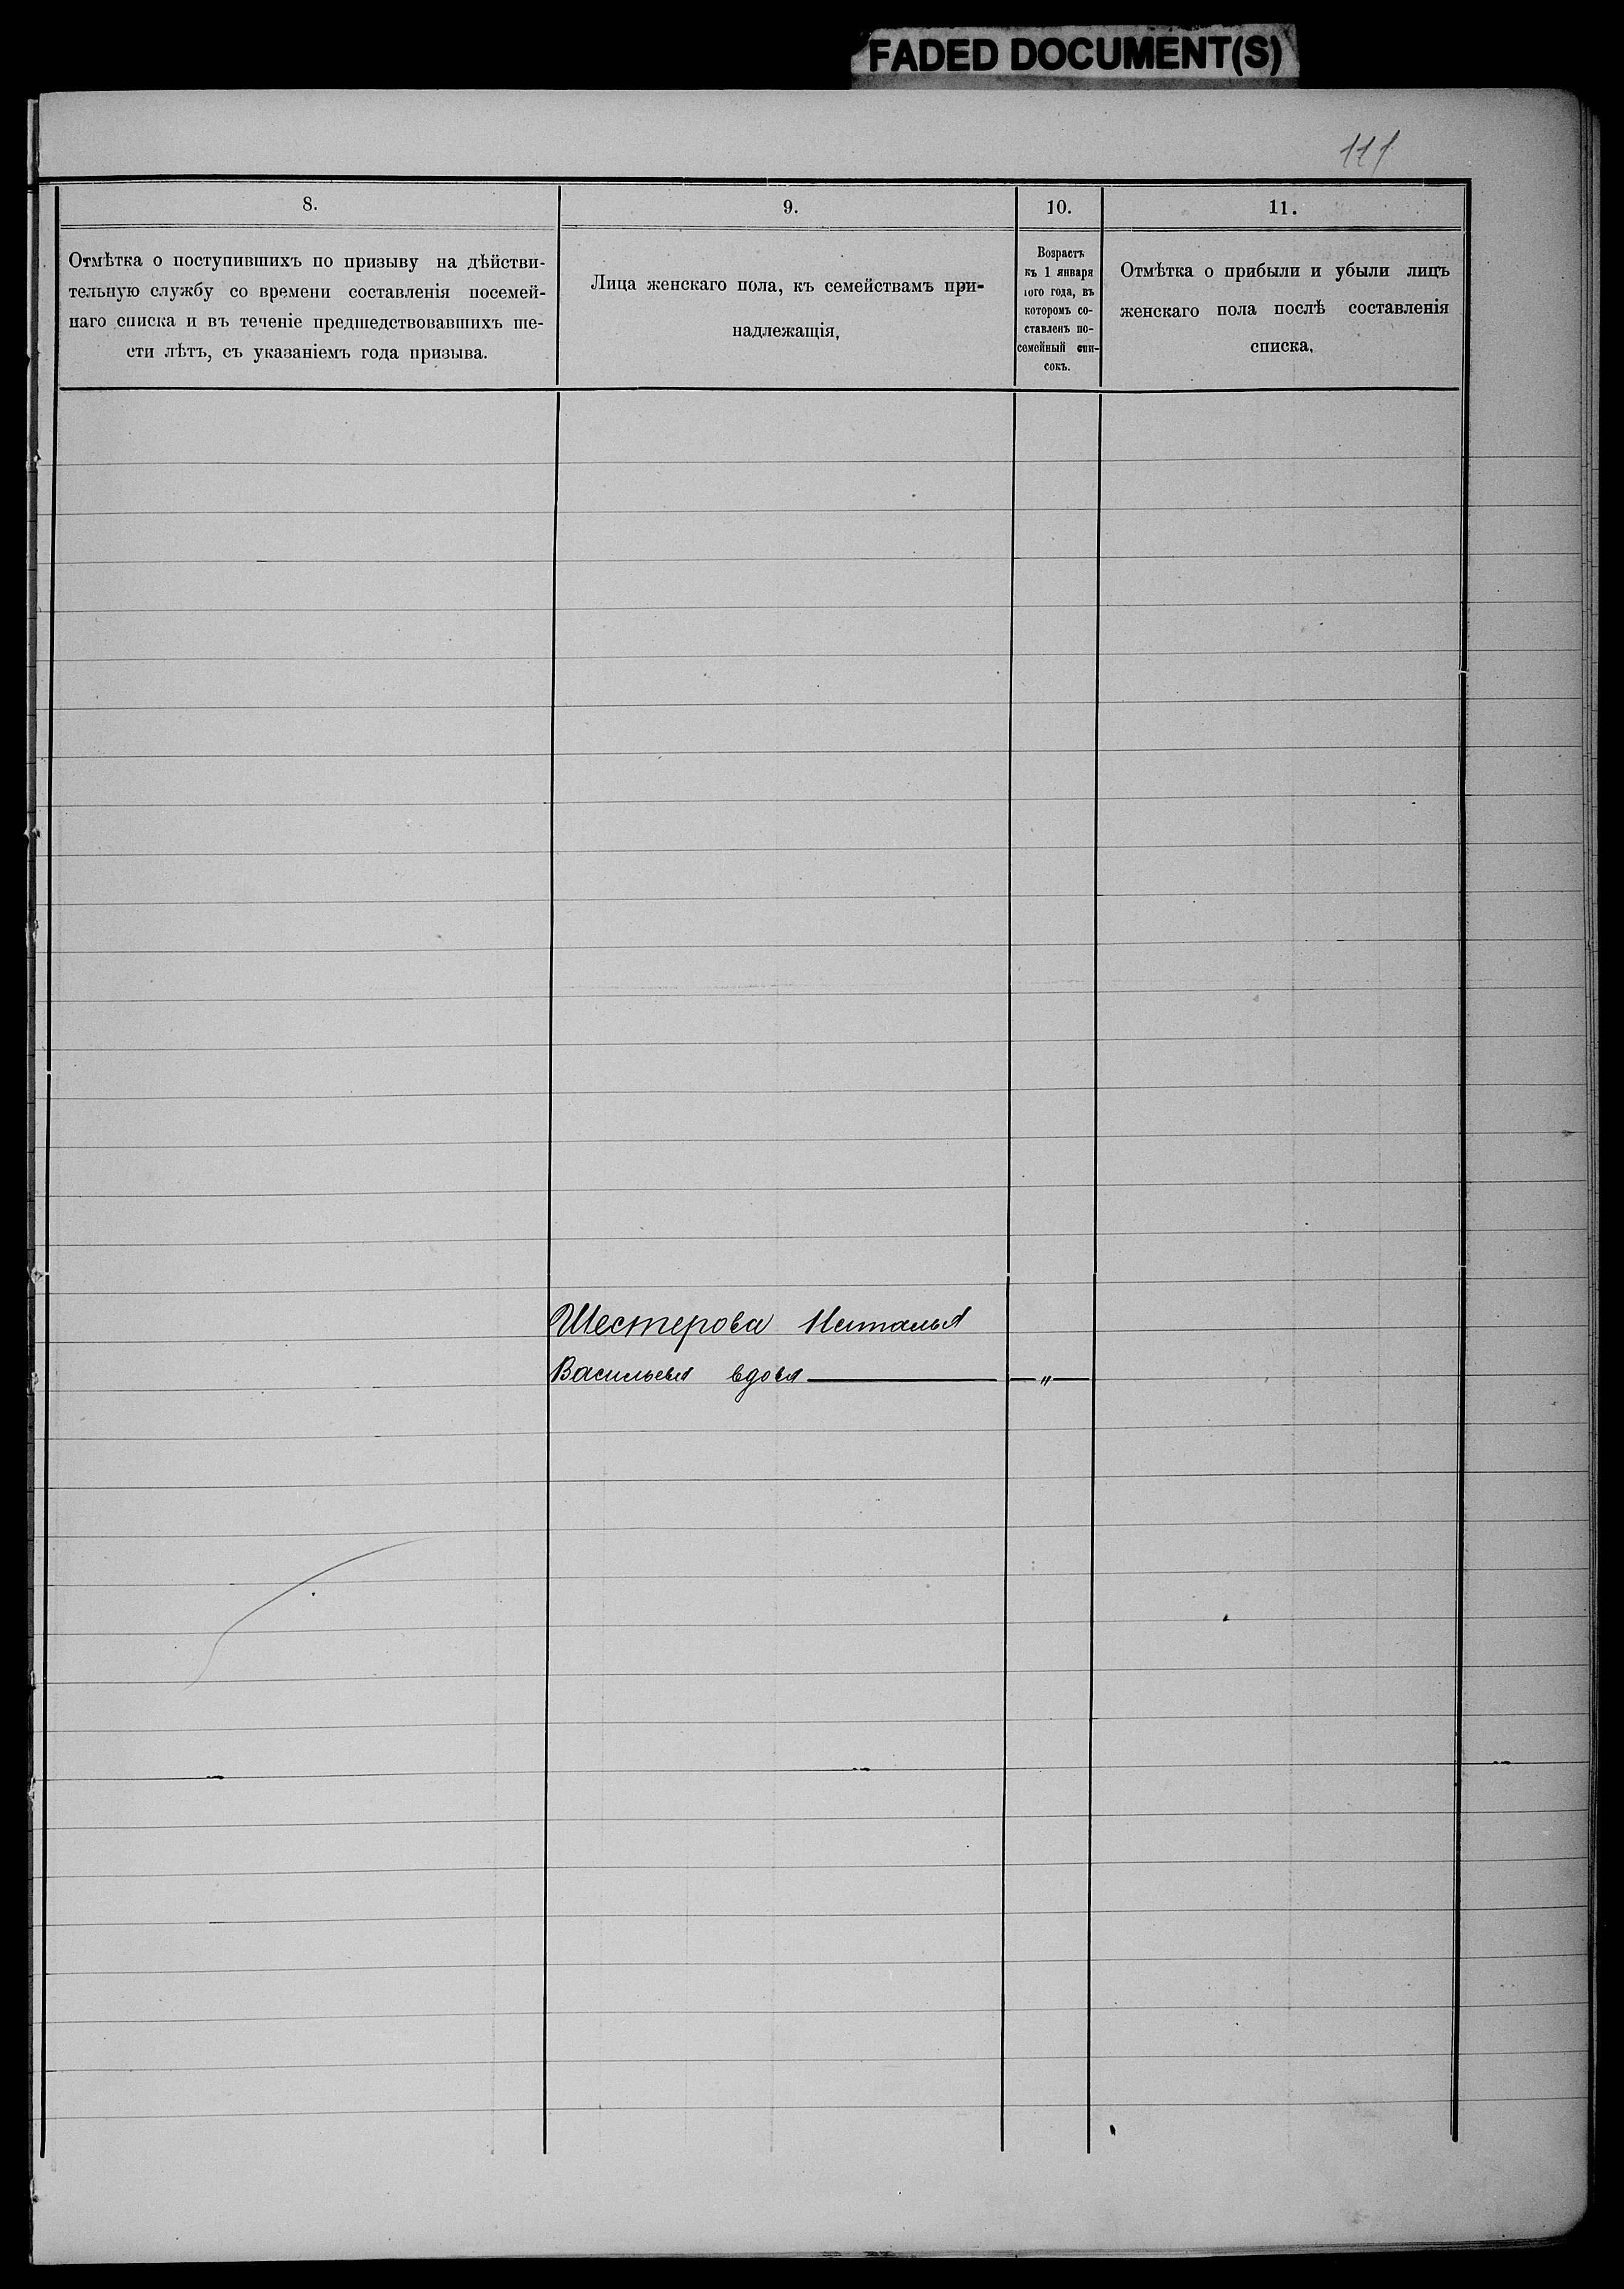 FADED DOCUMENT(S)
111
8.
Отмѣтка о поступившихъ по призыву на дѣйстви-
тельную службу со времени составленія посемей-
наго списка и въ теченіе предшедствовавшихъ ше-
сти лѣтъ, съ указаніемъ года призыва.
9.
Лица женскаго пола, къ семействамъ при-
надлежащія,
10.
Возрастъ
къ 1 января
того года, въ
которомъ со-
ставленъ по-
семейный спи-
сокъ.
11.
Отмѣтка о прибыли и убыли лицъ
женскаго пола послѣ составленія
списка.
Шестерова Наталья
Васильева вдова — „ —